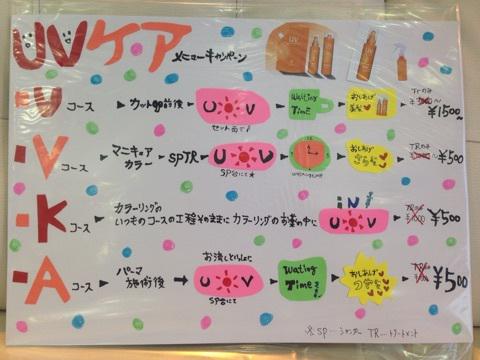 UVケア メニューキャンペーン
UV
U コース カットの前後 UV Waiting Time おしあげ TRのみ ¥1500〜
セット面で♪
V コース マニキュア カラー SPTR UV おしあげ TRのみ ¥500
SP台にて★
K コース カラーリングの いつものコースの工程そのままに カラーリングのお薬の中に iN UV ¥500
A コース パーマ 施術後 お流しといっしょに UV Waiting Time おしあげ ¥500
SP台にて
※SP…シャンプー TR…トリートメント